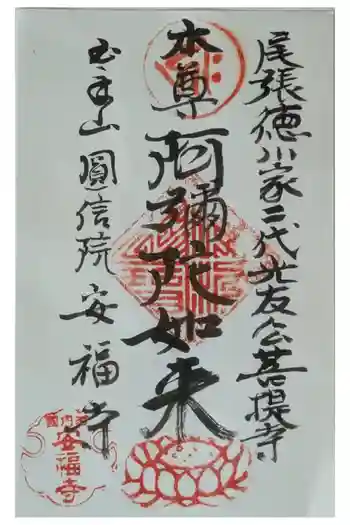 尾張徳川家二代光友公菩提寺
本尊阿彌陀如来
玉手山圓信院安福寺
安福寺